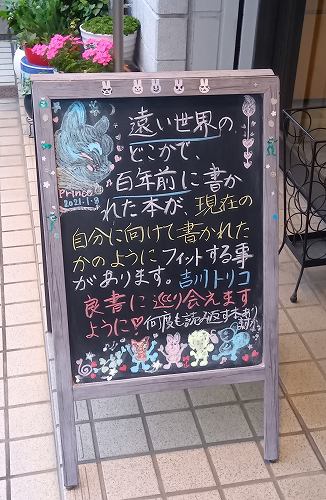 遠い世界の
どこかで、
百年前に書か
れた本が、現在の
自分に向けて書かれた
かのようにフィットする事
があります。吉川トリコ
良書に巡り会えます
ように♡何度も読み返す本あり
ますか?
Prince
2021.1.8